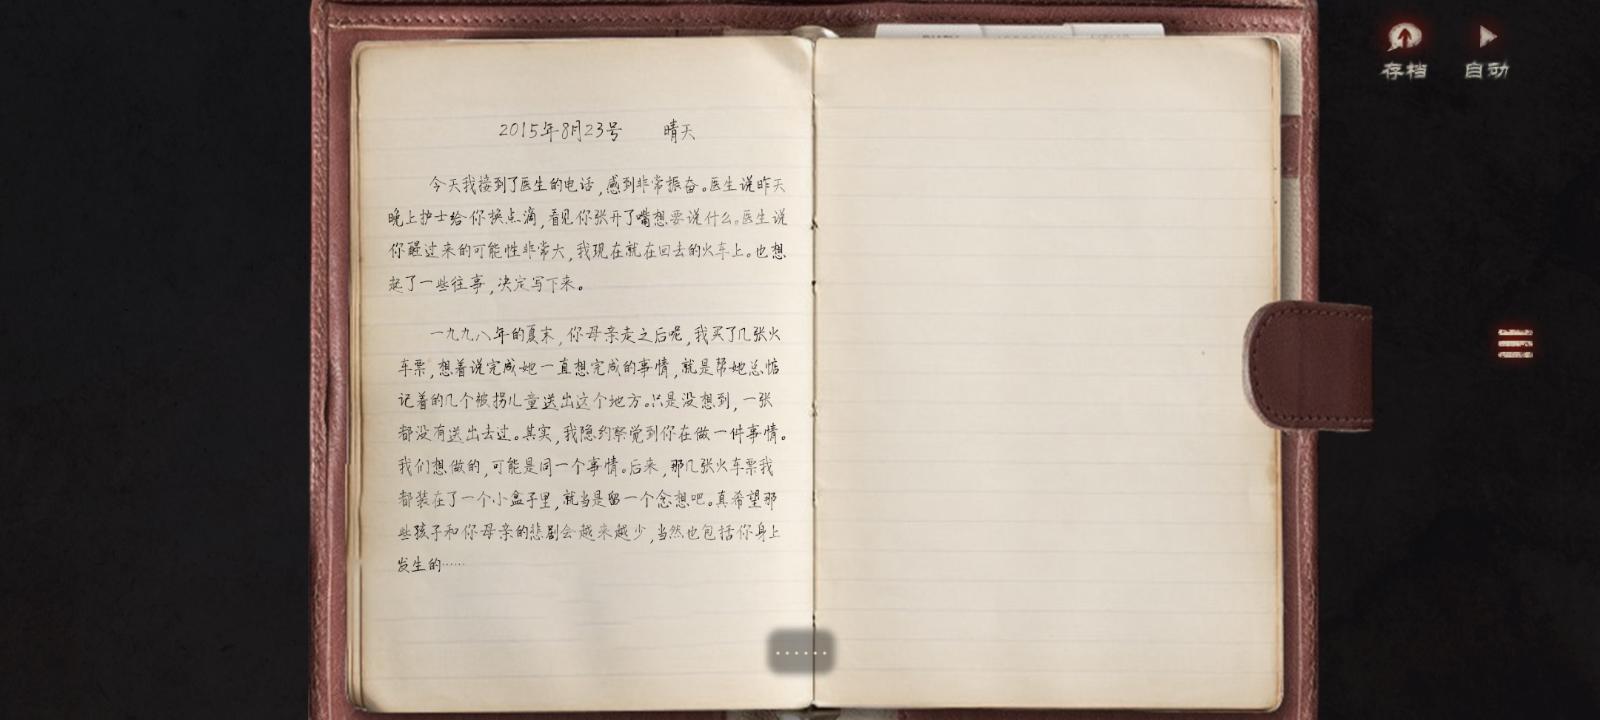 存档
自动
2015年8月23号 晴天
今天我接到了医生的电话,感到非常振奋。医生说昨天
晚上护士给你换点滴,看见你张开了嘴想要说什么。医生说
你醒过来的可能性非常大,我现在就在回去的火车上。也想
起了一些往事,决定写下来。
一九九八年的夏末,你母亲走之后呢,我买了几张火
车票,想着说完成她一直想完成的事情,就是帮她总惦
记着的几个被拐儿童送出这个地方。只是没想到,一张
都没有送出去过。其实,我隐约察觉到你在做一件事情。
我们想做的,可能是同一个事情。后来,那几张火车票我
都装在了一个小盒子里,就当是留一个念想吧。真希望那
些孩子和你母亲的悲剧会越来越少,当然也包括你身上
发生的……
······